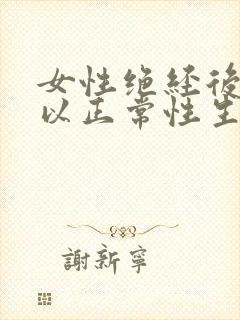 女性绝经後
以正常性生
謝新寧